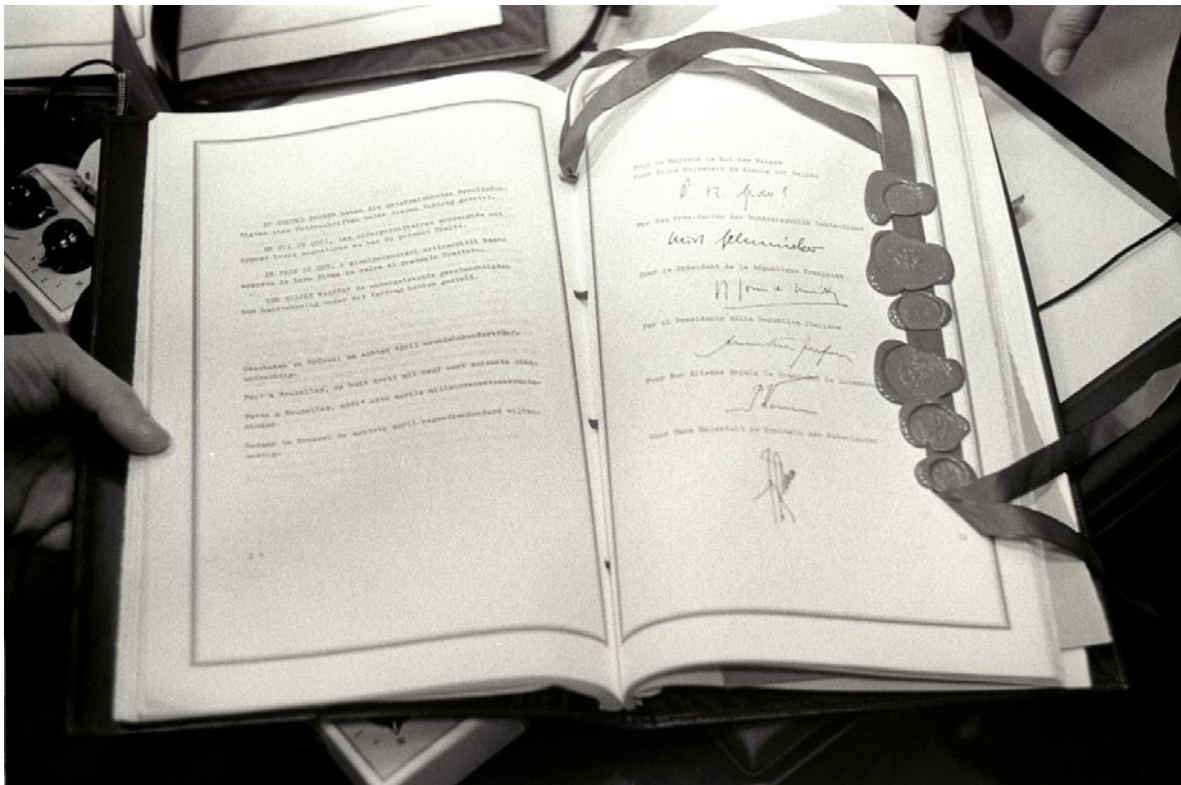 ZU URKUND DESSEN haben die unterzeichneten Bevollmäch-
tigten ihre Unterschriften unter diesen Vertrag gesetzt.
EN FOI DE QUOI, les plénipotentiaires soussignés ont
apposé leurs signatures au bas du présent Traité.
IN FEDE DI CHE, i plenipotenziari sottoscritti hanno
apposto le loro firme in calce al presente Trattato.
TEN BLIJKE WAARVAN de ondergetekende gevolmachtigden
hun handtekening onder dit Verdrag hebben gesteld.
Geschehen zu Brüssel am achten April neunzehnhundertfünf-
undsechzig.
Fait à Bruxelles, le huit avril mil neuf cent soixante cinq.
Fatto a Bruxelles, addi' otto aprile millenovecentosessanta-
cinque.
Gedaan te Brussel de achtste april negentienhonderd vijfen-
zestig.
Pour Sa Majesté le Roi des Belges
Voor Zijne Majesteit de Koning der Belgen
Für den Präsidenten der Bundesrepublik Deutschland
Pour le Président de la République française
Per il Presidente della Repubblica italiana
Pour Son Altesse Royale le Grand-Duc de
Voor Hare Majesteit de Koningin der Nederlanden